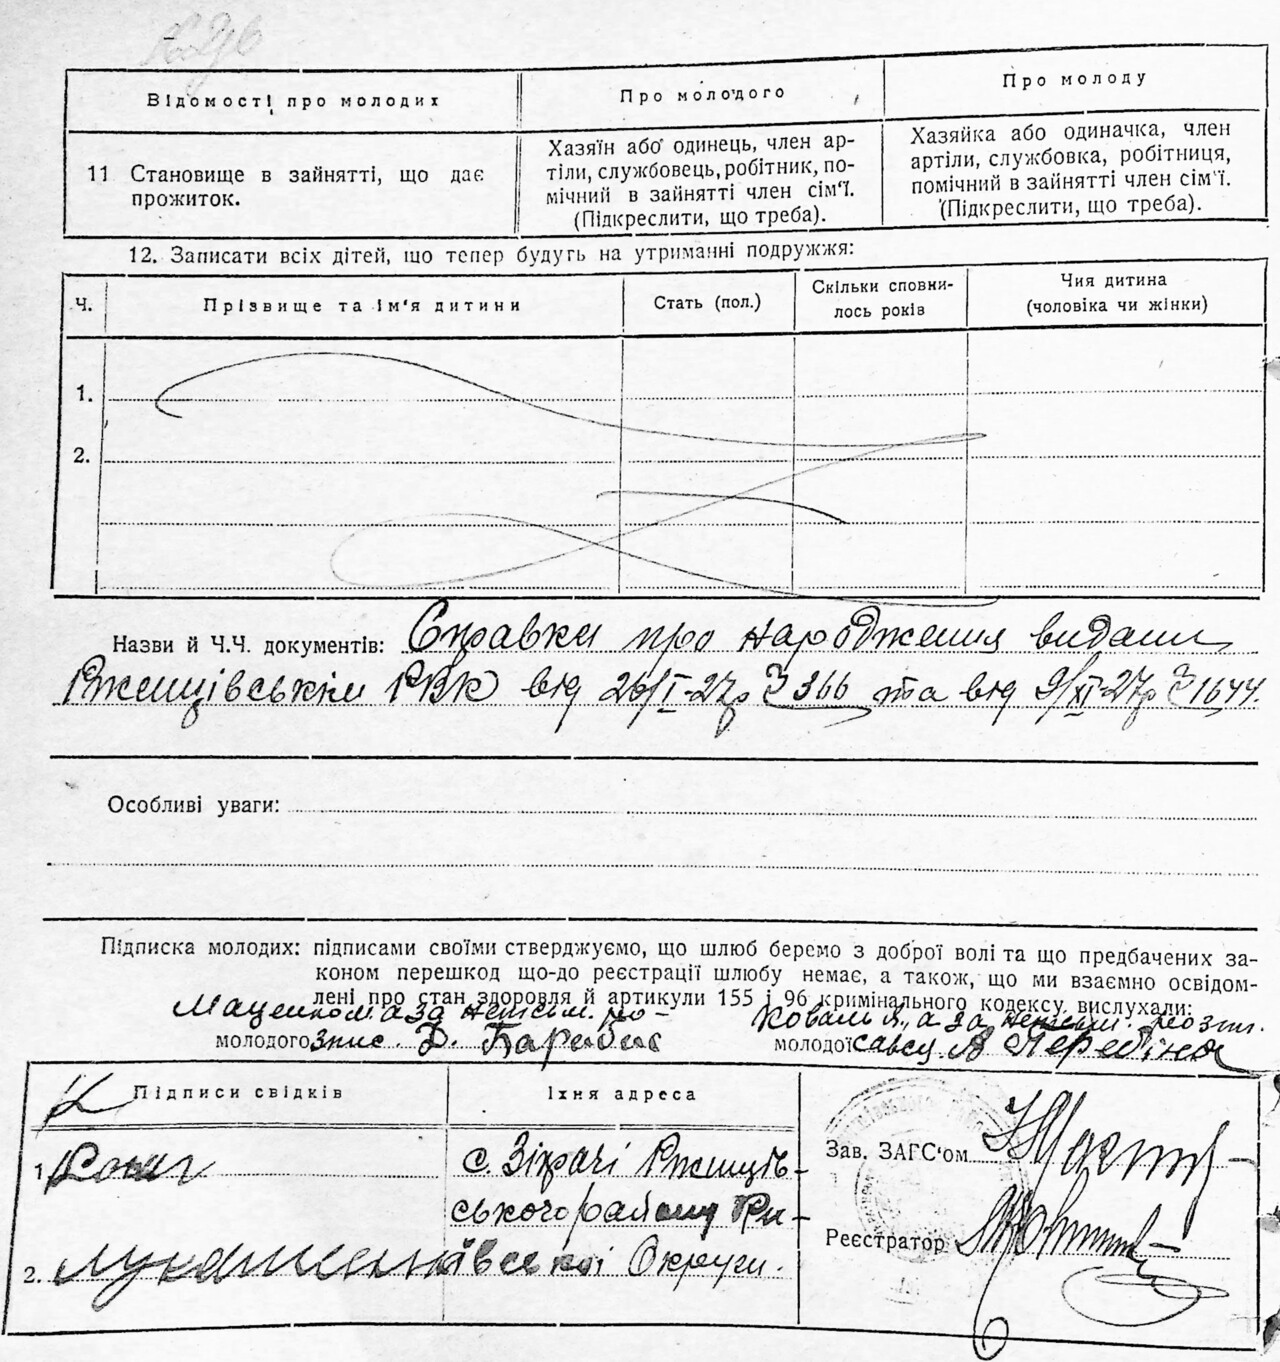 Відомості про молодих
Про молодого
Про молоду
11 Становище в зайнятті, що дає
прожиток.
Хазяїн або одинець, член ар-
тіли, службовець, робітник, по-
мічний в зайнятті член сім'ї.
(Підкреслити, що треба).
Хазяйка або одиначка, член
артіли, службовка, робітниця,
помічний в зайнятті член сім'ї.
(Підкреслити, що треба).
12. Записати всіх дітей, що тепер будуть на утриманні подружжя:
Ч.
Прізвище та ім'я дитини
Стать (пол.)
Скільки сповни-
лось років
Чия дитина
(чоловіка чи жінки)
1.
2.
Назви й Ч.Ч. документів: Справки про народження видані
Ржищівським РВК від 26/I-27р № 366 та від 9/XI-27р № 1644.
Особливі уваги:
Підписка молодих: підписами своїми стверджуємо, що шлюб беремо з доброї волі та що предбачених за-
коном перешкод що-до реєстрації шлюбу немає, а також, що ми взаємно освідом-
лені про стан здоровля й артикули 155 і 96 кримінального кодексу вислухали:
Маценком а за неписьм. ро-
молодого зпис. Д. Барабас
Коваль Я., а за неписьм. розпи.
молодої савсь А Перебіно
Підписи свідків
Їхня адреса
1.
с. Зікрачі Ржищів-
ського району Ки-
ївської Округи.
2. Лукашен
Зав. ЗАГС'ом
Реєстратор